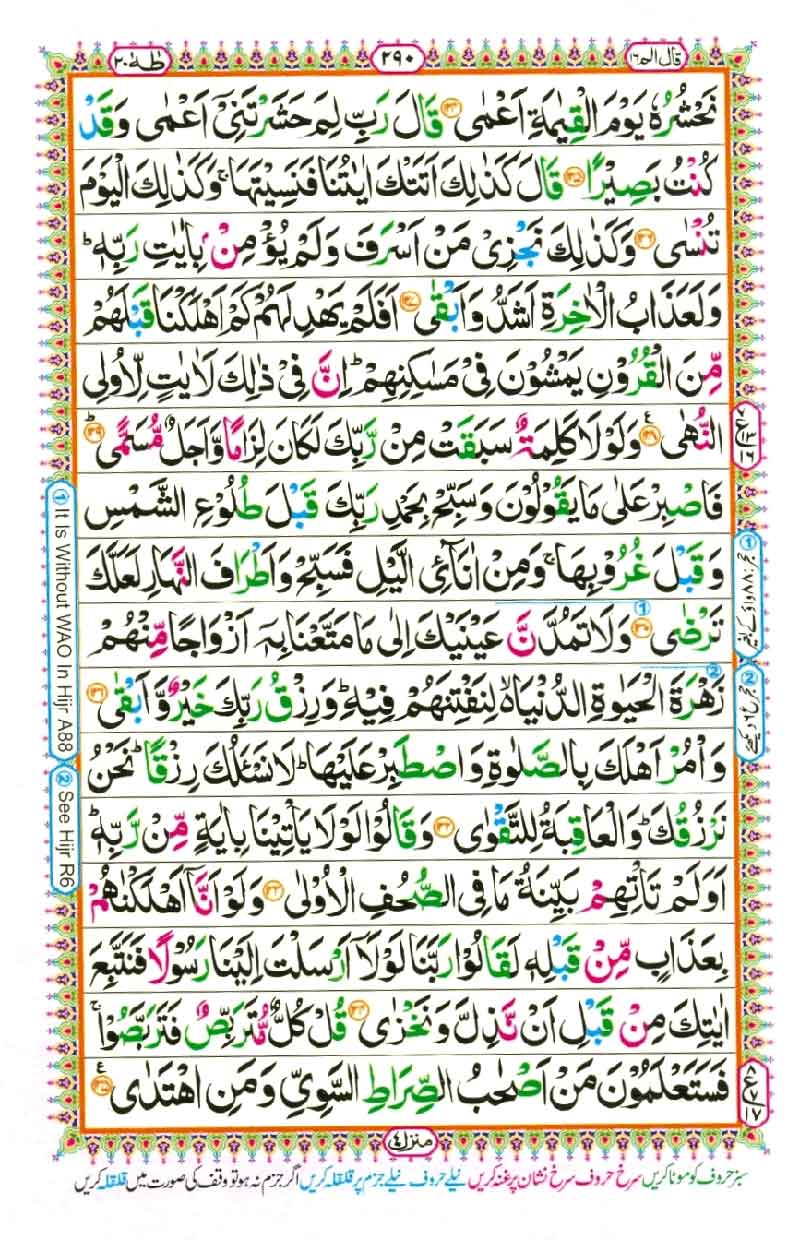 قال الم ١٦
٢٩٠
طٰهٰ ٢٠
نَحْشُرُهٗ يَوْمَ الْقِيٰمَةِ اَعْمٰى ﴿۱۲۴﴾ قَالَ رَبِّ لِمَ حَشَرْتَنِىْۤ اَعْمٰى وَقَدْ
كُنْتُ بَصِيْرًا ﴿۱۲۵﴾ قَالَ كَذٰلِكَ اَتَتْكَ اٰيٰتُنَا فَنَسِيْتَهَا ۚ وَكَذٰلِكَ الْيَوْمَ
تُنْسٰى ﴿۱۲۶﴾ وَكَذٰلِكَ نَجْزِىْ مَنْ اَسْرَفَ وَلَمْ يُؤْمِنْۢ بِاٰيٰتِ رَبِّهٖ ؕ
وَلَعَذَابُ الْاٰخِرَةِ اَشَدُّ وَاَبْقٰى ﴿۱۲۷﴾ اَفَلَمْ يَهْدِ لَهُمْ كَمْ اَهْلَكْنَا قَبْلَهُمْ
مِّنَ الْقُرُوْنِ يَمْشُوْنَ فِىْ مَسٰكِنِهِمْ ؕ اِنَّ فِىْ ذٰلِكَ لَاٰيٰتٍ لِّاُولِى
النُّهٰى ﴿۱۲۸﴾ وَلَوْلَا كَلِمَةٌ سَبَقَتْ مِنْ رَّبِّكَ لَكَانَ لِزَامًا وَّاَجَلٌ مُّسَمًّى ؕ ﴿۱۲۹﴾
فَاصْبِرْ عَلٰى مَا يَقُوْلُوْنَ وَسَبِّحْ بِحَمْدِ رَبِّكَ قَبْلَ طُلُوْعِ الشَّمْسِ
وَقَبْلَ غُرُوْبِهَا ۚ وَمِنْ اٰنَآئِ الَّيْلِ فَسَبِّحْ وَاَطْرَافَ النَّهَارِ لَعَلَّكَ
تَرْضٰى ﴿۱۳۰﴾ وَلَا تَمُدَّنَّ عَيْنَيْكَ اِلٰى مَا مَتَّعْنَا بِهٖۤ اَزْوَاجًا مِّنْهُمْ
زَهْرَةَ الْحَيٰوةِ الدُّنْيَا ۙ لِنَفْتِنَهُمْ فِيْهِ ؕ وَرِزْقُ رَبِّكَ خَيْرٌ وَّاَبْقٰى ﴿۱۳۱﴾
وَاْمُرْ اَهْلَكَ بِالصَّلٰوةِ وَاصْطَبِرْ عَلَيْهَا ؕ لَا نَسْئَلُكَ رِزْقًا ؕ نَحْنُ
نَرْزُقُكَ ؕ وَالْعَاقِبَةُ لِلتَّقْوٰى ﴿۱۳۲﴾ وَقَالُوْا لَوْلَا يَاْتِيْنَا بِاٰيَةٍ مِّنْ رَّبِّهٖ ؕ
اَوَلَمْ تَاْتِهِمْ بَيِّنَةُ مَا فِى الصُّحُفِ الْاُوْلٰى ﴿۱۳۳﴾ وَلَوْ اَنَّاۤ اَهْلَكْنٰهُمْ
بِعَذَابٍ مِّنْ قَبْلِهٖ لَقَالُوْا رَبَّنَا لَوْلَاۤ اَرْسَلْتَ اِلَيْنَا رَسُوْلًا فَنَتَّبِعَ
اٰيٰتِكَ مِنْ قَبْلِ اَنْ نَّذِلَّ وَنَخْزٰى ﴿۱۳۴﴾ قُلْ كُلٌّ مُّتَرَبِّصٌ فَتَرَبَّصُوْا ۚ
فَسَتَعْلَمُوْنَ مَنْ اَصْحٰبُ الصِّرَاطِ السَّوِىِّ وَمَنِ اهْتَدٰى ﴿۱۳۵﴾
منزل ٤
سبز حروف کو موٹا کریں سرخ حروف سرخ نشان پر غنہ کریں نیلے حروف نیلے جزم پر قلقلہ کریں اگر جزم نہ ہو تو وقف کی صورت میں قلقلہ کریں
① It Is Without WAO In Hijr A88
② See Hijr R6